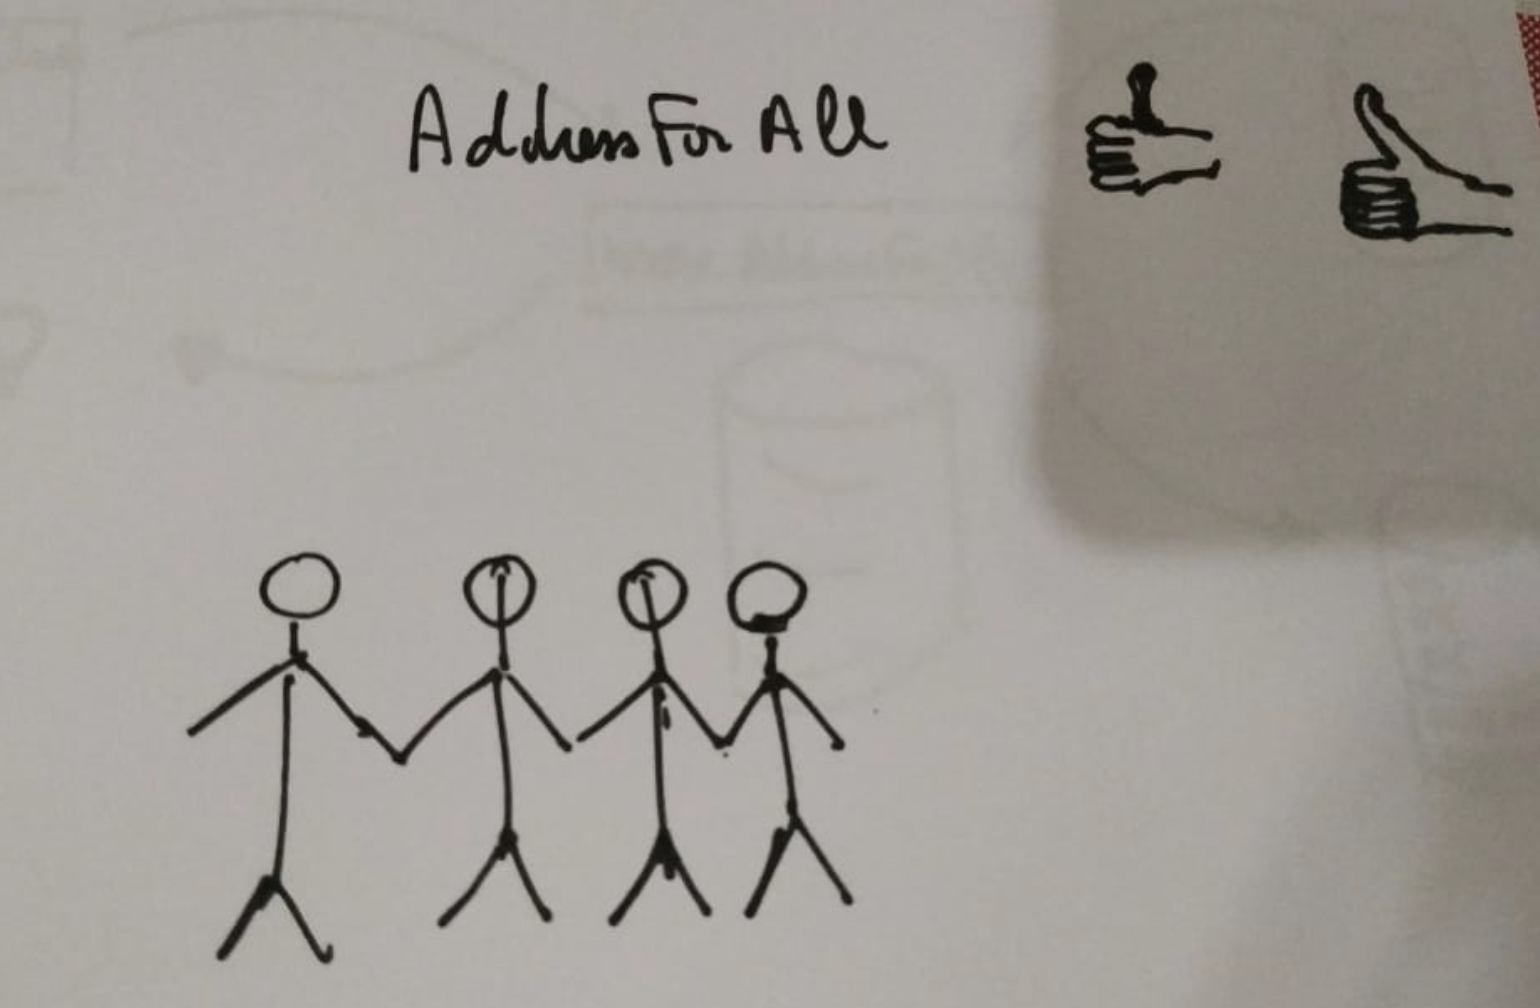 Address For All